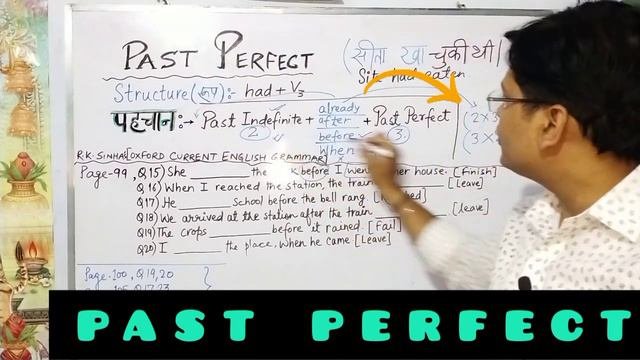 PAST PERFECT
(सीता खा चुकी थी|
Sita had eaten
Structure (रूप):- had + V3
पहचान:→ Past Indefinite + already after before When + Past Perfect
2
3
(2×3
(3×
R.K. SINHA [OXFORD CURRENT ENGLISH GRAMMAR]
Page-99, Q.15) She ______ the before I went her house. [finish]
Q.16) When I reached the station, the train [leave]
Q.17) He ______ school before the bell rang.
Q.18) We arrived at the station after the train ______ [leave]
Q.19) The crops ______ before it rained. [Fail]
Q20) I ______ the place, when he came [Leave]
Page-100, Q.19,20
PAST PERFECT